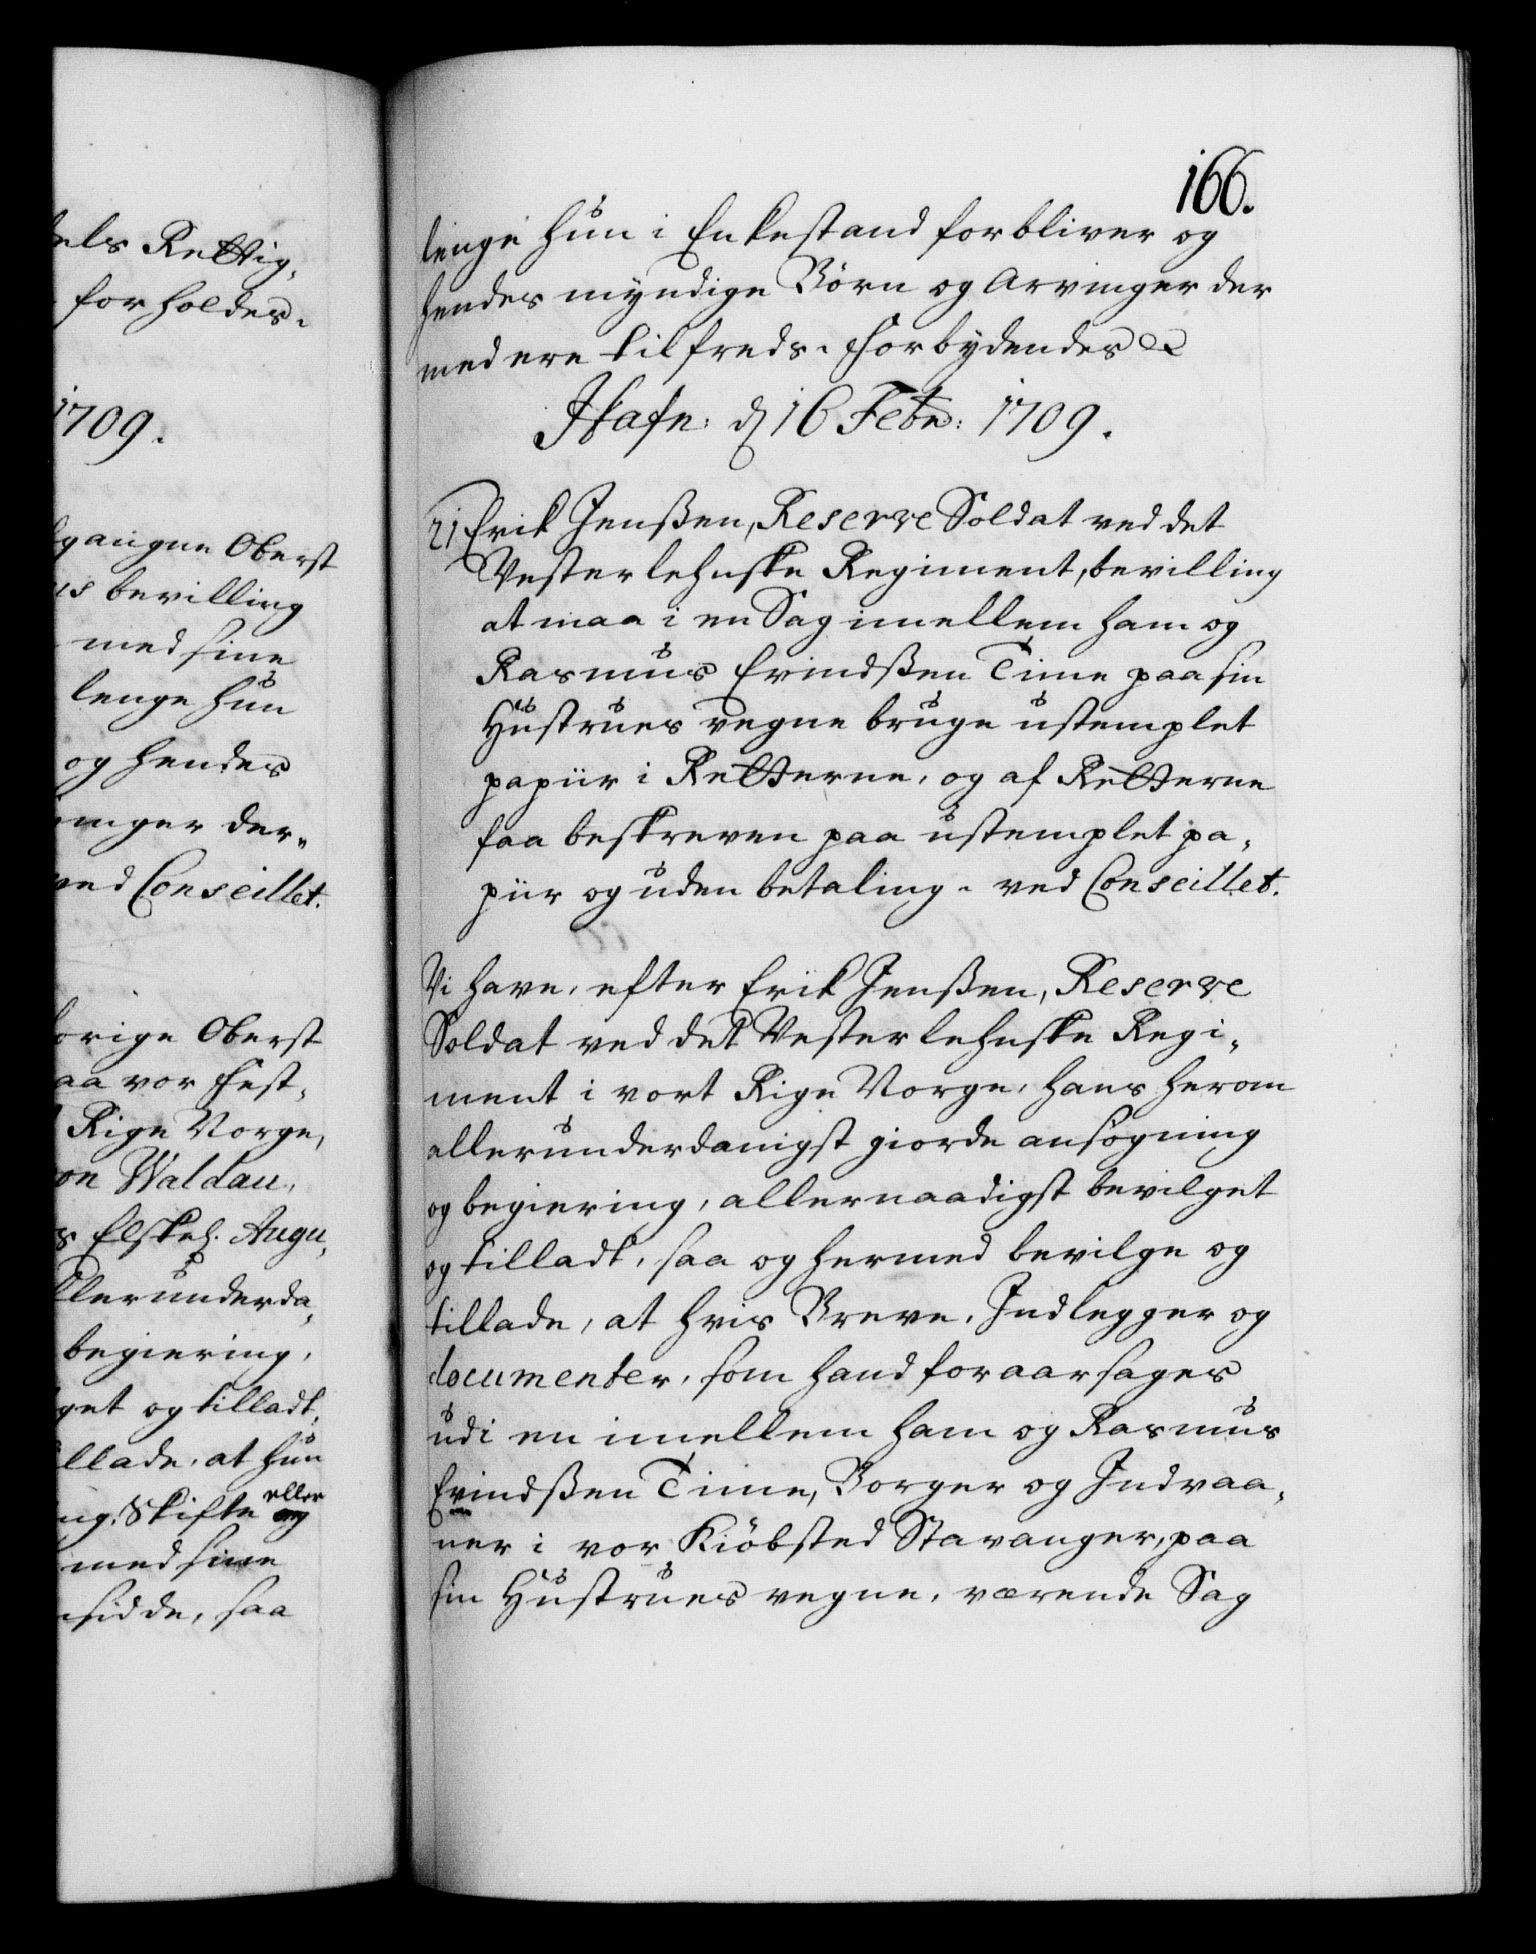 els Rettig,
forholdes.
1709.
gangne Oberst
bevilling
med sine
lenge hun
og hendes
inger der,,
ved Conseillet.
orige Oberst
aa vor Fest,
Rige Norge,
on Waldau,
Elskel. Augu,
llerunderda,
begiering,
get og tilladt,
llade, at hun
ng. Skifte eller
med sine
sidde, saa
166.
lenge hun i Enkestand forbliver og
hendes myndige Börn og Arvinger der
med ere tilfreds. Forbydendes &
Hafn: d 16 Febr: 1709.
21 Erik Jenßen, Reserve Soldat ved det
Vesterlehnske Regiment, bevilling
at maa i en Sag imellem ham og
Rasmus Evindßen Time paa sin
Hustrues vegne bruge ustemplet
papiir i Retterne, og af Retterne
faa beskreven paa ustemplet pa,
piir og uden betaling. ved Conseillet.
Vi have, efter Erik Jenßen, Reserve
Soldat ved det Vesterlehnske Regi,
ment i vort Rige Norge, hans herom
allerunderdanigst giorde ansögning
og begiering, allernaadigst bevilget
og tilladt, saa og hermed bevilge og
tillade, at hvis Breve, Indlegger og
documenter, som hand foraarsages
udi en imellem ham og Rasmus
Evindßen Time, Borger og Indvaa,
ner i vor Kiöbsted Stavanger, paa
sin Hustrues vegne, værende Sag